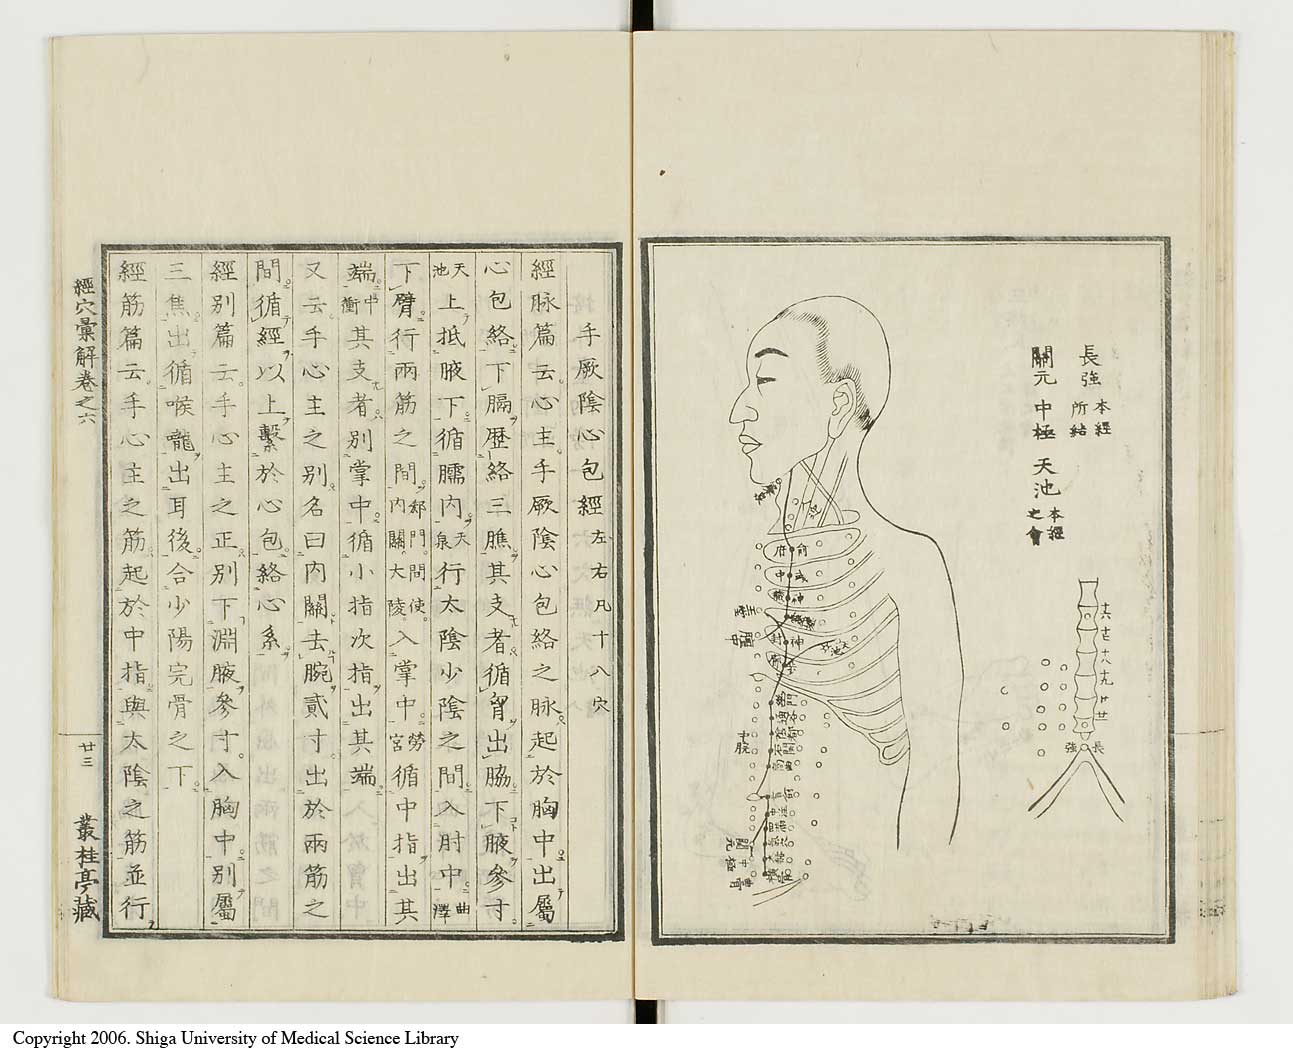 長強 本經所結
關元 中極 天池 本經之會
十六 十七 十八 十九 廿 廿一
長強
天池
玉堂
膻中
中脘
關元
中極
曲骨
手厥陰心包經 左右凡十八穴
經脉篇云心主手厥陰心包絡之脉起於胸中出屬
心包絡下膈歷絡三膲其支者循胷出脇下腋參寸
天池上抵腋下循臑內天泉行太陰少陰之間入肘中曲澤
下臂行兩筋之間郄門間使內關大陵入掌中勞宮循中指出其
端中衝其支者別掌中循小指次指出其端
又云手心主之別名曰內關去腕貳寸出於兩筋之
間循經以上繫於心包絡心系
經別篇云手心主之正別下淵腋參寸入胸中別屬
三焦出循喉嚨出耳後合少陽完骨之下
經筋篇云手心主之筋起於中指與太陰之筋並行
經穴彙解卷之六
廿三
叢桂亭藏
Copyright 2006. Shiga University of Medical Science Library